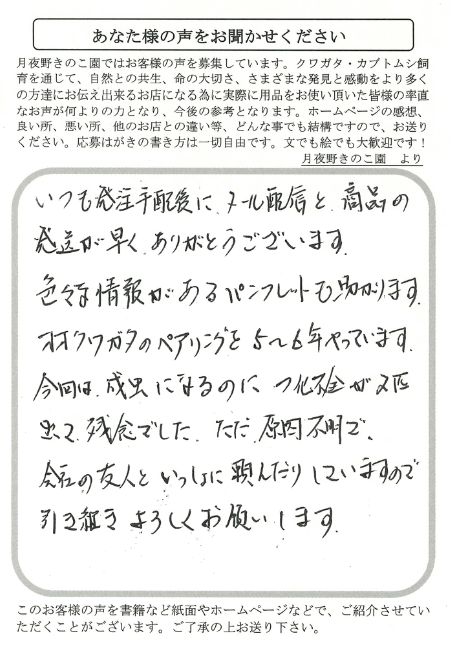 あなた様の声をお聞かせください
月夜野きのこ園ではお客様の声を募集しています。クワガタ・カブトムシ飼
育を通じて、自然との共生、命の大切さ、さまざまな発見と感動をより多く
の方達にお伝え出来るお店になる為に実際に用品をお使い頂いた皆様の率直
なお声が何よりの力となり、今後の参考となります。ホームページの感想、
良い所、悪い所、他のお店との違い等、どんな事でも結構ですので、お送り
ください。応募はがきの書き方は一切自由です。文でも絵でも大歓迎です！
月夜野きのこ園　より
いつも発注手配後に、メール配信と、商品の
発送が早く、ありがとうございます。
色々な情報があるパンフレットも助かります。
オオクワガタのペアリングを5〜6年やっています。
今回は、成虫になるのに、羽化不全が2匹
出て、残念でした。ただ、原因不明で、
会社の友人といっしょに頼んだりしていますので
引き続きよろしくお願いします。
このお客様の声を書籍など紙面やホームページなどで、ご紹介させてい
ただくことがございます。ご了承の上お送り下さい。